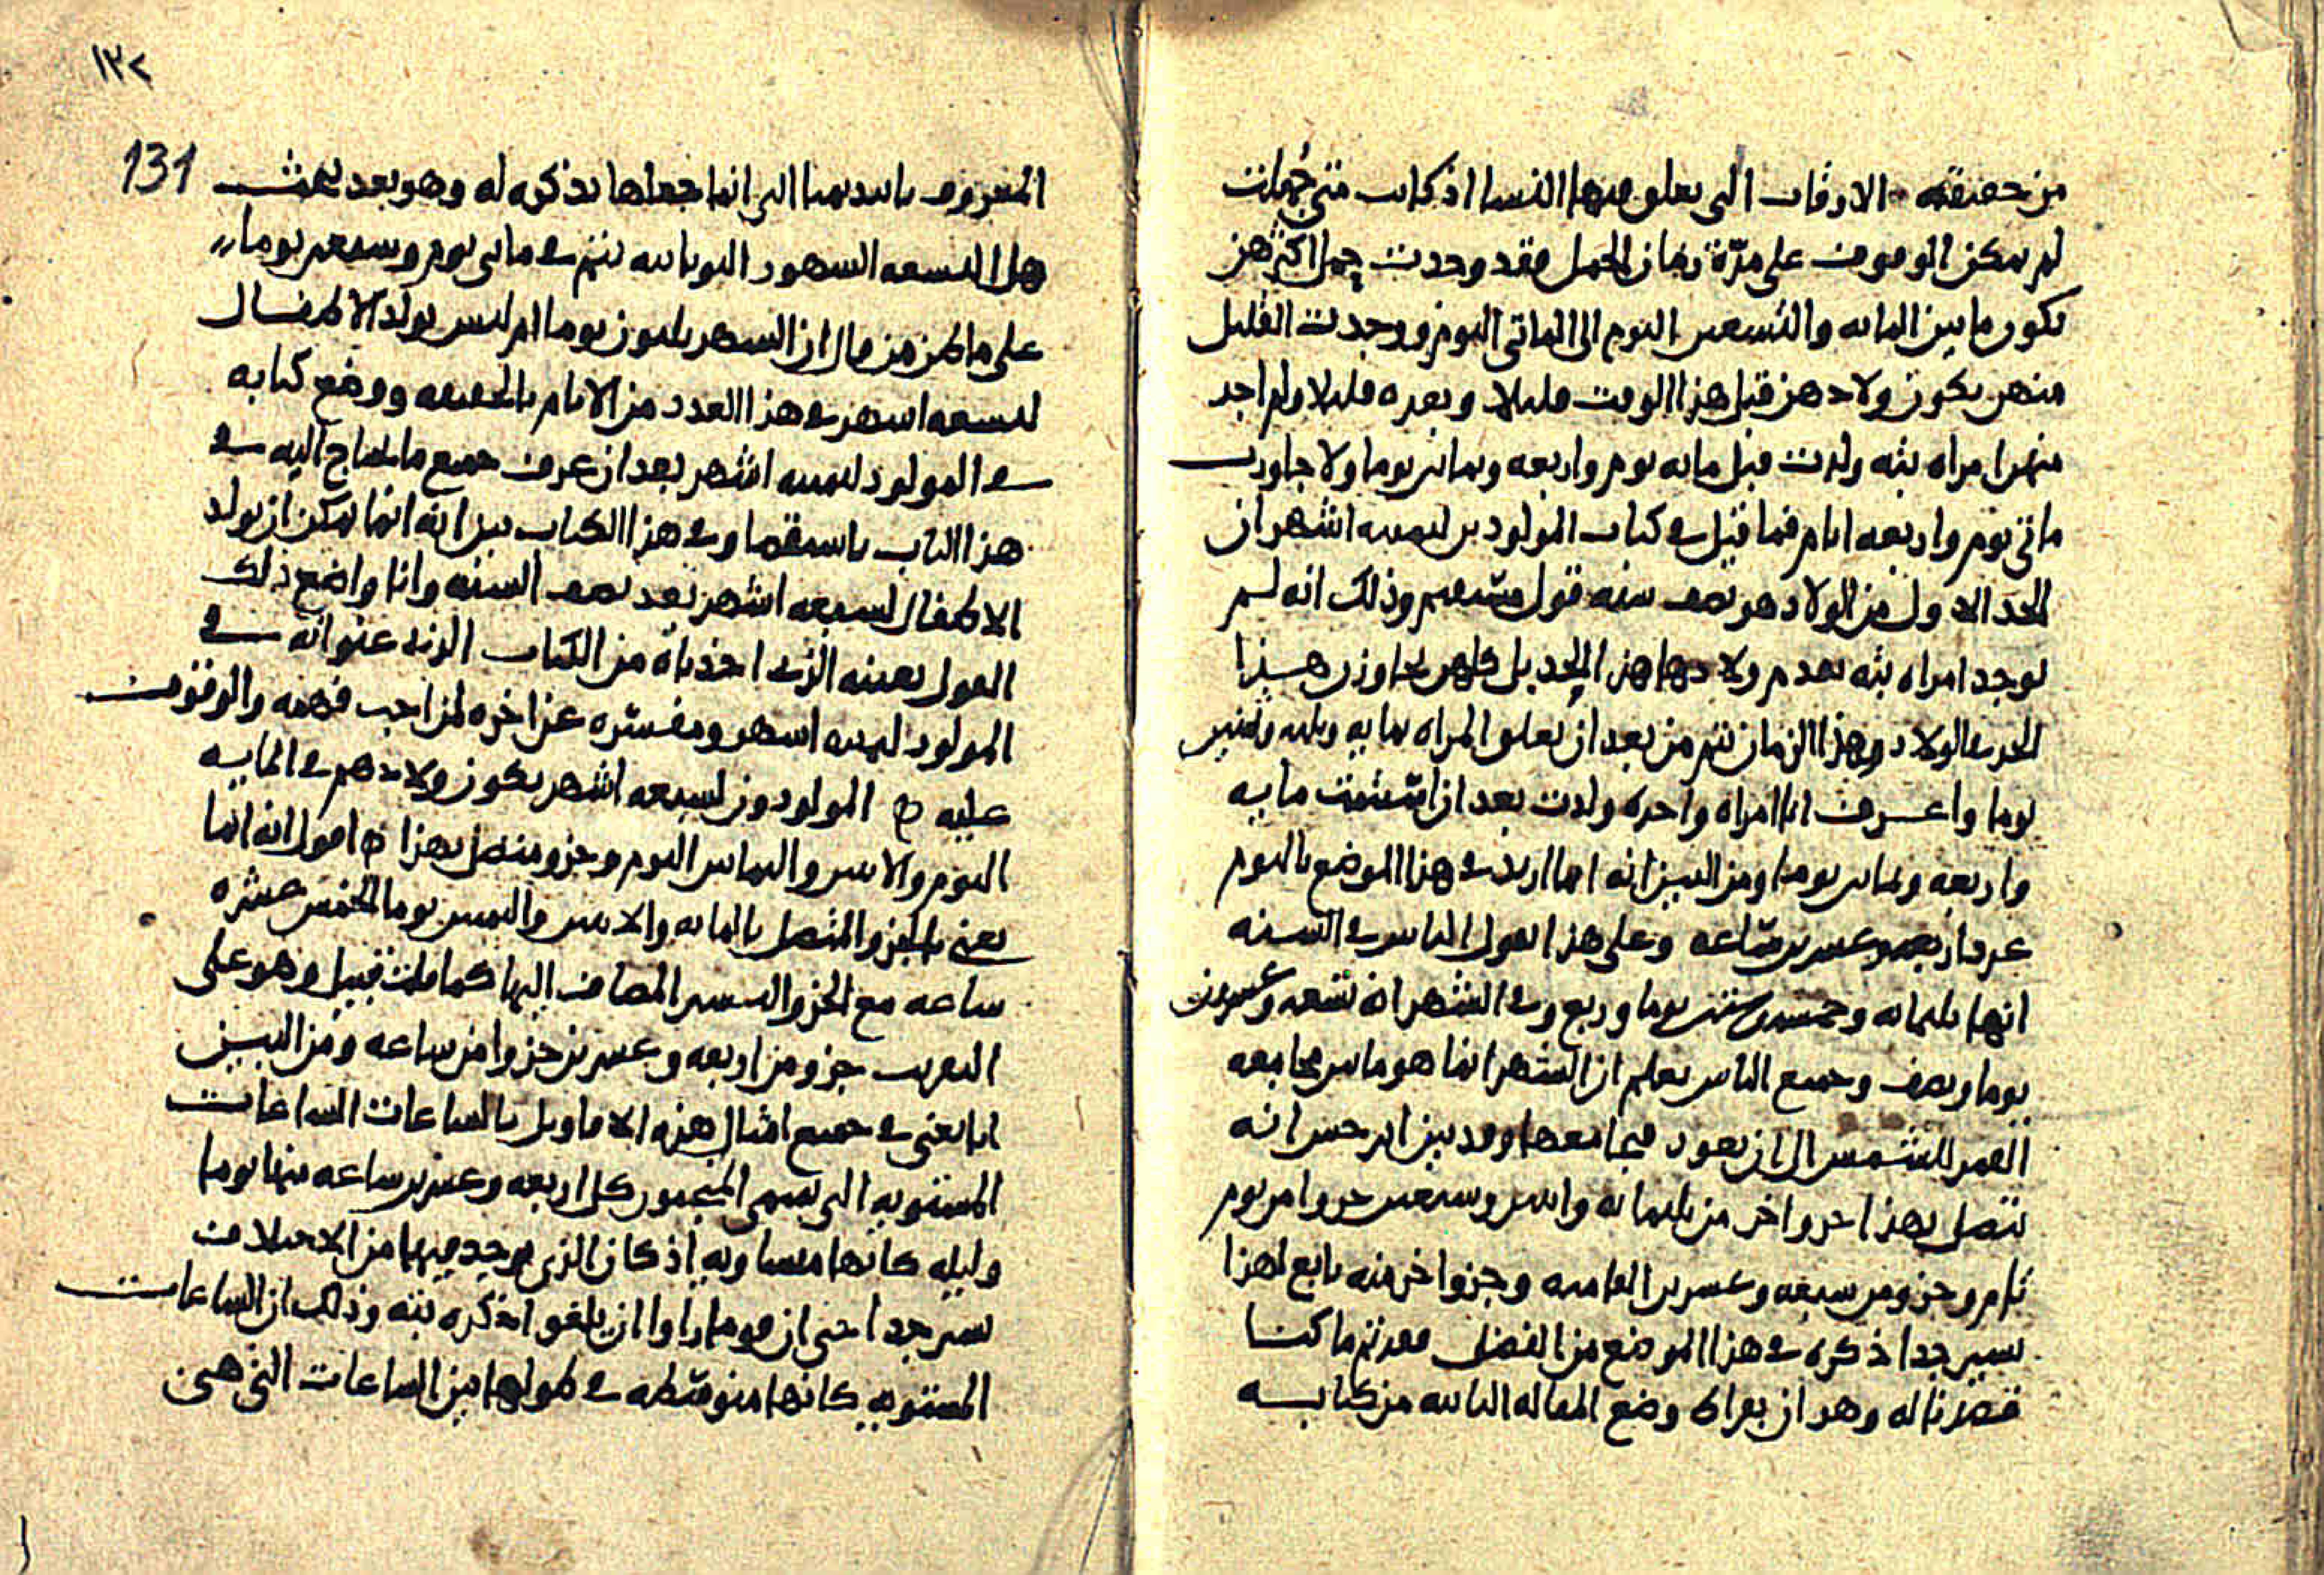 من حقيقته الاوقات التى تعلق فيها النسا اذ كانت متى جُهلت
لم يمكن الوقوف على مدّة زمان الحمل فقد وجدت جمل اكثرهن
تكون ما بين المايه والتسعين اليوم الى المائتى اليوم ووجدت القليل
منهن يكون ولادهن قبل هذا الوقت قليلا وبعده قليلا ولم اجد
منهن امراه بته ولدت قبل مايه يوم واربعه وثمانين يوما ولا جاوزت
مائتى يوم واربعه ايام فما قيل فى كتاب المولودين لثمنيه اشهر ان
الحد الاول من الولاد هو نصف سنه قول مستقيم وذلك انه لم
توجد امراه بته تقدم ولادها هذا الحد بل كلهن يجاوزن هذا
الحد فى الولاد وهذا الزمان يتم من بعد ان تعلق المراه بمايه وثلثه وثمنين
يوما واعرف انا امراه واحده ولدت بعد ان استتمت مايه
واربعه وثمانين يوما ومن البين انه انما اريد فى هذا الموضع باليوم
عدد اربعه وعشرين ساعه وعلى هذا يقول الناس فى السنه
انها ثلثمايه وخمسه وستين يوما وربع وفى الشهر انه تسعه وعشرين
يوما ونصف وجميع الناس يعلم ان الشهر انما هو ما بين مجامعه
القمر للشمس الى ان يعود فيجامعها وقد بين ابرخس انه
يتصل بهذا جزو اخر من ثلثمايه واثنين وسبعين جزوا من يوم
تام وجزو من سبعه وعشرين الفا منه وجزو اخر منه تابع لهذا
يسير جدا ذكره فى هذا الموضع من الفضل فقد تم ما كنا
قصدنا له وهو ان بقراط وضع المقاله الثانيه من كتابه
١٣٢
131
المعروف بابيديميا التى انما جعلها تذكره له وهو بعد يبحث
هل التسعه الشهور اليونانيه تتم فى مائتى يوم وسبعين يوما
على ما ظن من قال ان الشهر ثلثون يوما ام ليس يولد الاطفال
لتسعه اشهر فى هذا العدد من الايام بالحقيقه ووضع كتابه
فى المولود لثمنيه اشهر بعد ان عرف جميع ما يحتاج اليه فى
هذا الباب باستقصا وفى هذا الكتاب بين انه انما يمكن ان يولد
الاطفال لسبعه اشهر بعد نصف السنه وانا واضع ذلك
القول بعينه الذى اخذناه من الكتاب الذى عنوانه فى
المولود لثمنيه اشهر ومفسّره عن اخره لمن احب فهمه والوقوف
عليه ه المولودون لسبعه اشهر يكون ولادهم فى المايه
اليوم والاثنين والثمانين اليوم وجزو متصل بهذا ه اقول انه انما
يعنى بالجزو المتصل بالمايه والاثنين والثمنين يوما الخمس عشره
ساعه مع الجزو اليسير المضاف اليها كما قلت قبيل وهو على
التقريب جزو من اربعه وعشرين جزوا من ساعه ومن البين
انا نعنى فى جميع امثال هذه الاقاويل بالساعات الساعات
المستويه التى يسمى المنجمون كل اربعه وعشرين ساعه منها يوما
وليله كانها متساويه اذ كان الذى يوجد فيها من الاختلاف
يسير جدا حتى ان قوما راوا ان يلغوا ذكره بته وذلك ان الساعات
المستويه كانها متوسّطه فى طولها بين الساعات التى هى